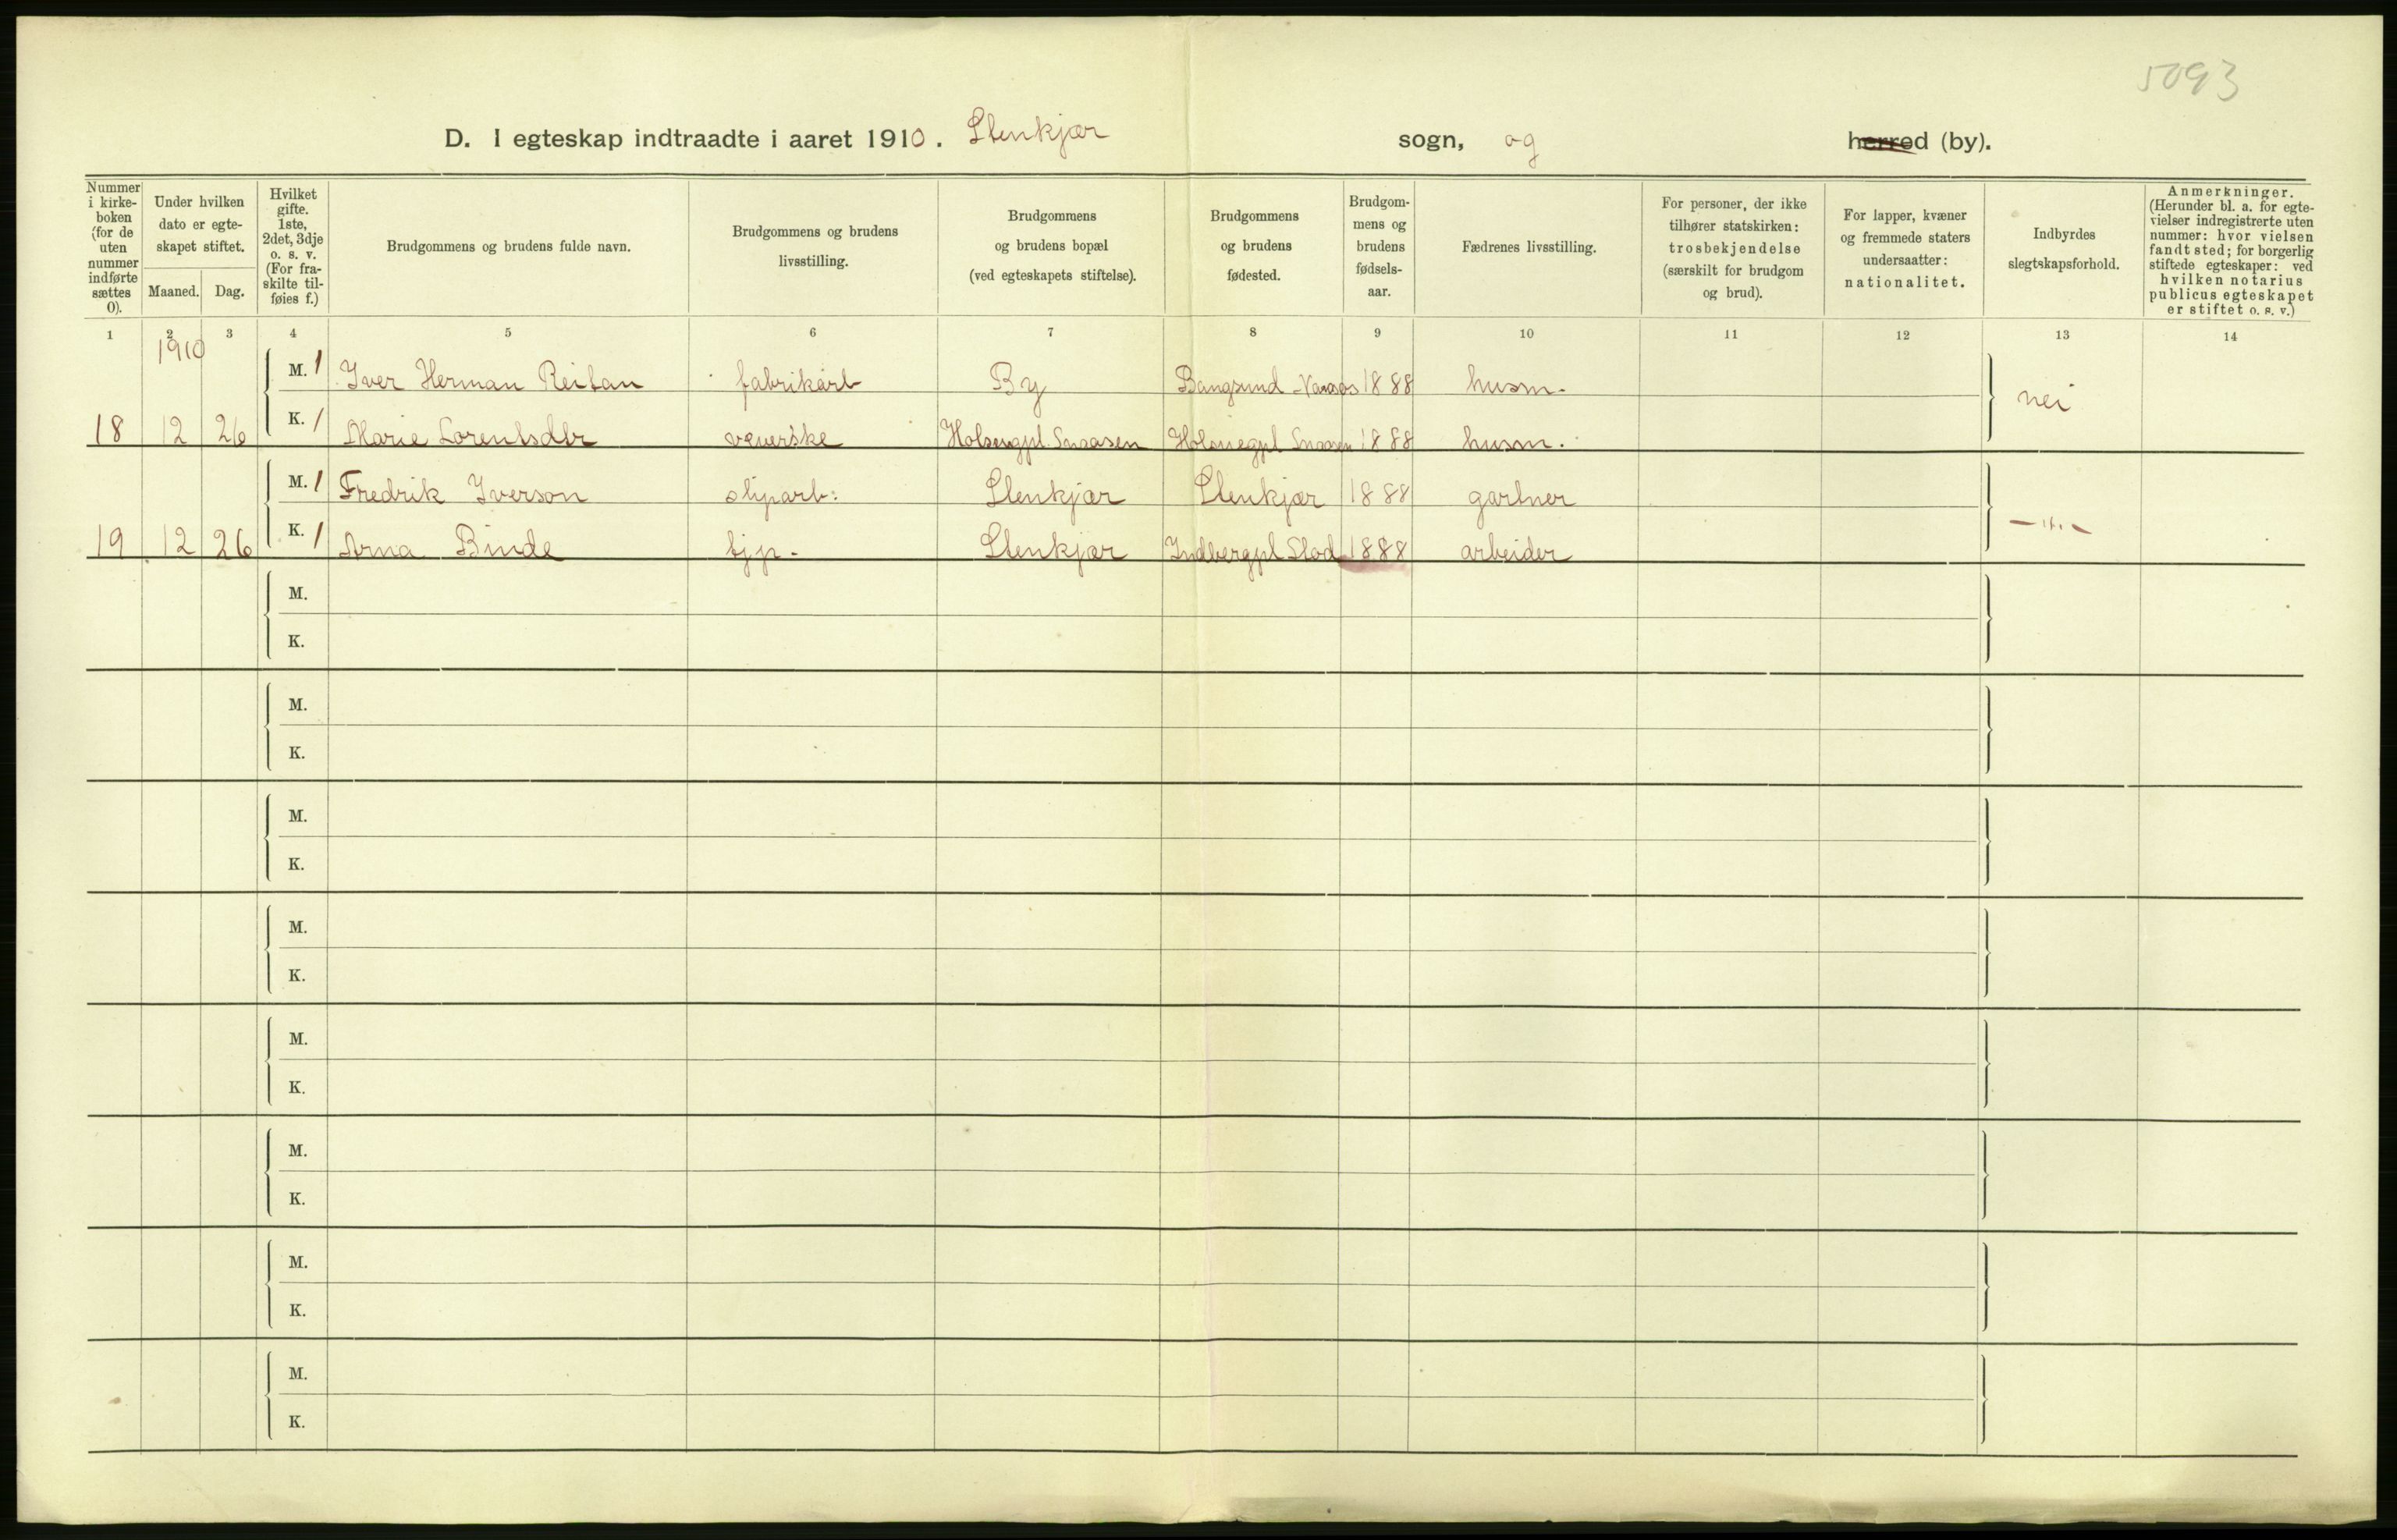 5093
D. I egteskap indtraadte i aaret 1910. Stenkjær sogn, og herred (by).
Nummer i kirkeboken (for de uten nummer indførte sættes 0).
Under hvilken dato er egteskapet stiftet.
Maaned. Dag.
Hvilket gifte. 1ste, 2det, 3dje o. s. v. (For fraskilte tilføies f.)
Brudgommens og brudens fulde navn.
Brudgommens og brudens livsstilling.
Brudgommens og brudens bopæl (ved egteskapets stiftelse).
Brudgommens og brudens fødested.
Brudgommens og brudens fødselsaar.
Fædrenes livsstilling.
For personer, der ikke tilhører statskirken: trosbekjendelse (særskilt for brudgom og brud).
For lapper, kvæner og fremmede staters undersaatter: nationalitet.
Indbyrdes slegtskapsforhold.
Anmerkninger. (Herunder bl. a. for egtevielser indregistrerte uten nummer: hvor vielsen fandt sted; for borgerlig stiftede egteskaper: ved hvilken notarius publicus egteskapet er stiftet o. s. v.)
1 2 3 4 5 6 7 8 9 10 11 12 13 14
1910
M. 1 Iver Herman Reitan fabrikarb By Bangsund 1888 husm. nei
18 12 26 K. 1 Marie Lorentsdtr veverske Holsengpl. Snaasen Snaasen 1888 husm.
M. 1 Fredrik Iverson sliparb. Stenkjær Stenkjær 1888 gartner —"—
19 12 26 K. 1 Arna Binde tjp. Stenkjær Indbergpl Stod 1888 arbeider
M.
K.
M.
K.
M.
K.
M.
K.
M.
K.
M.
K.
M.
K.
M.
K.